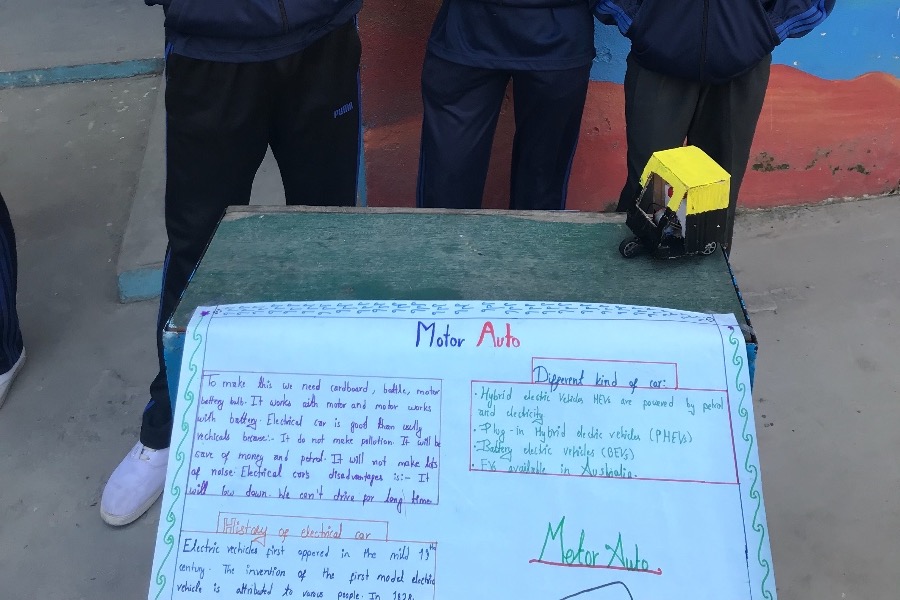 PUMA
Motor Auto
To make this we need cardboard, bottle, motor
battery bulb. It works with motor and motor works
with battery. Electrical car is good than
vechicals because:- It do not make pollution. It will be
save of money and petrol. It will not make lots
of noise. Electrical cars disadvantages is:- It
will low down. We can't drive for long time.
History of electrical car
Electric vechicles first appered in the mild 19th
century. The invention of the first model electric
vehicle is attributed to varous people. In 1828,
Different kind of car:
· Hybrid electric Vehicles HEVs are powered by petrol
and electricity
· Plug-in Hybrid electric vehicles (PHEVs)
· Battery electric vehicles (BEVs)
· EVs available in Australia.
Motor Auto